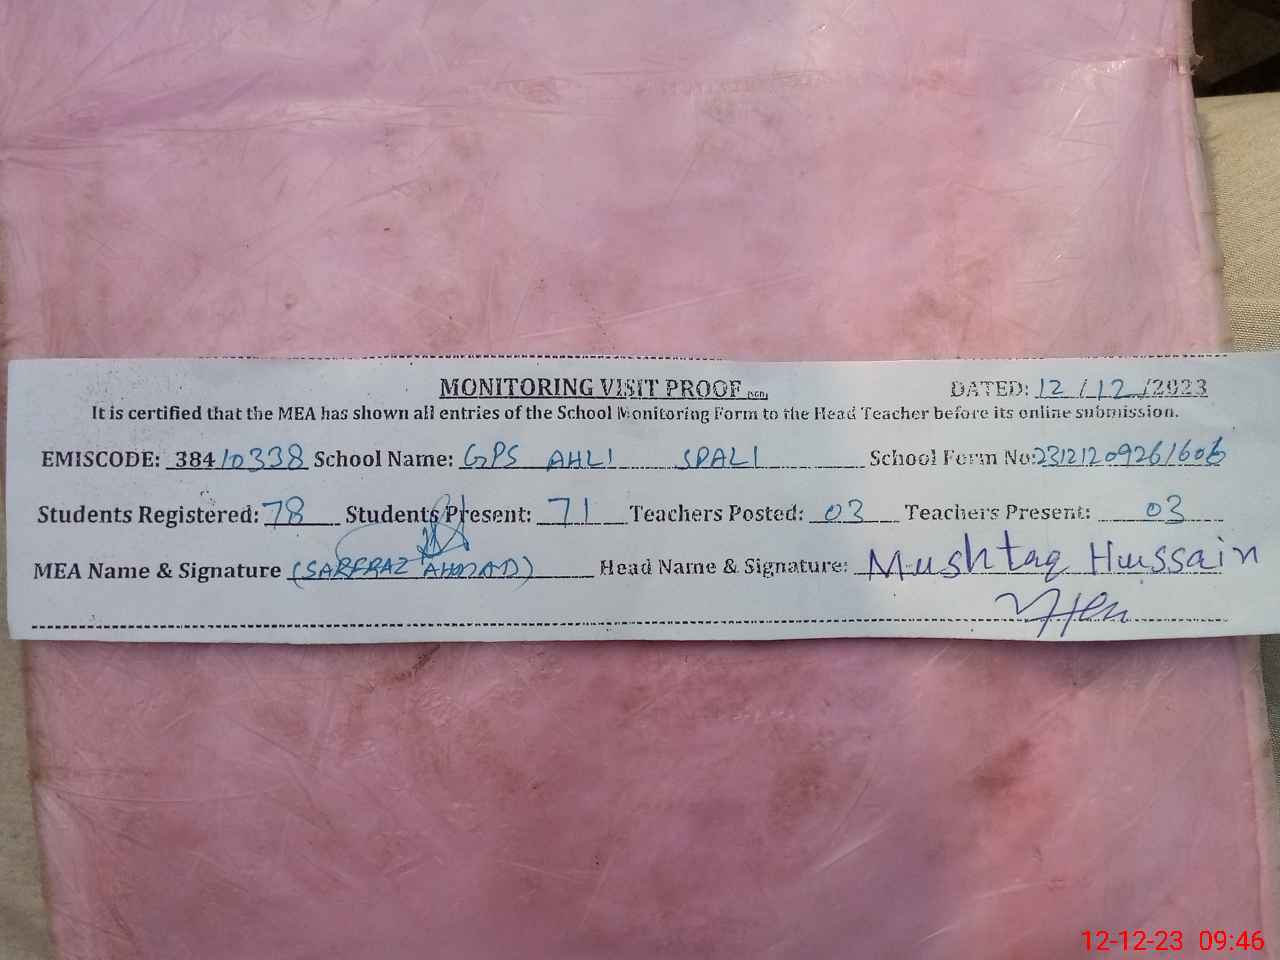 MONITORING VISIT PROOF DATED: 12/12/2023
It is certified that the MEA has shown all entries of the School Monitoring Form to the Head Teacher before its online submission.
EMISCODE: 38410338 School Name: GPS AHLI SPALI School Form No: 23121209261606
Students Registered: 78 Students Present: 71 Teachers Posted: 03 Teachers Present: 03
MEA Name & Signature (SARFRAZ AHMAD) Head Name & Signature: Mushtaq Hussain
12-12-23 09:46